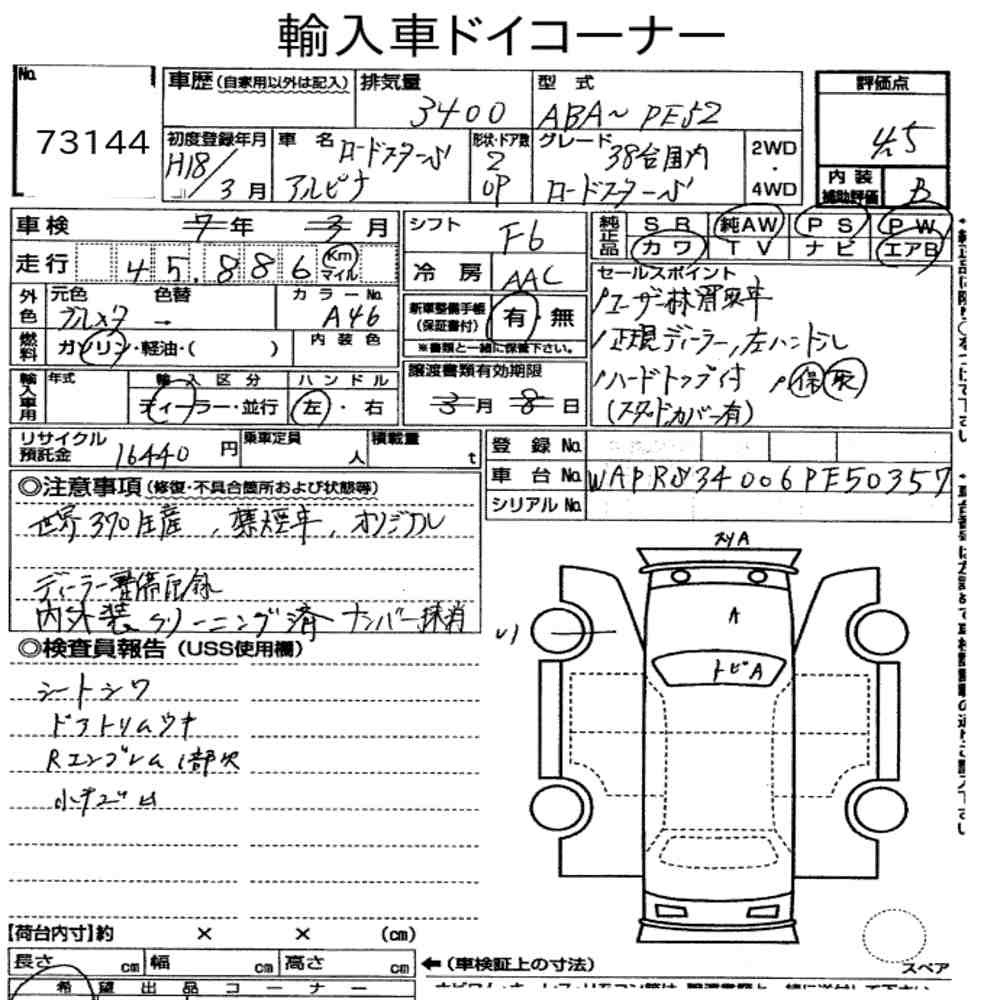 輸入車ドイコーナー
No.
73144
車歴(自家用以外は記入)
排気量 3400
型式 ABA~PE52
評価点 4.5
初度登録年月 H18/3月
車名 ロードスターS アルピナ
形状・ドア数 2 OP
グレード 38台国内 ロードスターS
2WD・4WD
内装補助評価 B
車検 7年 3月
シフト F6
純正品 SR 純AW PS PW
カワ TV ナビ エアB
走行 45,886 Km マイル
冷房 AAC
セールスポイント
ユーザー抹消車
正規ディーラー,左ハンドル
ハードトップ付 保 取
(スタッドカバー有)
外色 元色 色替 カラーNo.
ブルメタ → A46
新車整備手帳(保証書付) 有・無
※書類と一緒に保管下さい。
燃料 ガソリン・軽油・( ) 内装色
輸入車用 年式 輸入区分 ハンドル
ディーラー・並行 左・右
譲渡書類有効期限
3月 8日
リサイクル預託金 16440円
乗車定員 人
積載量 t
登録No.
車台No. WAPRS34006PE50357
シリアルNo.
◎注意事項(修復・不具合箇所および状態等)
世界370生産,禁煙車,オリジナル
ディーラー整備記録
内外装クリーニング済 ナンバー抹消
◎検査員報告(USS使用欄)
シートシワ
Rエンブレム1部欠
小キズ
スリA
A
トビA
【荷台内寸】約 × × (cm)
長さ cm 幅 cm 高さ cm
←(車検証上の寸法)
スペア
希望出品コーナー